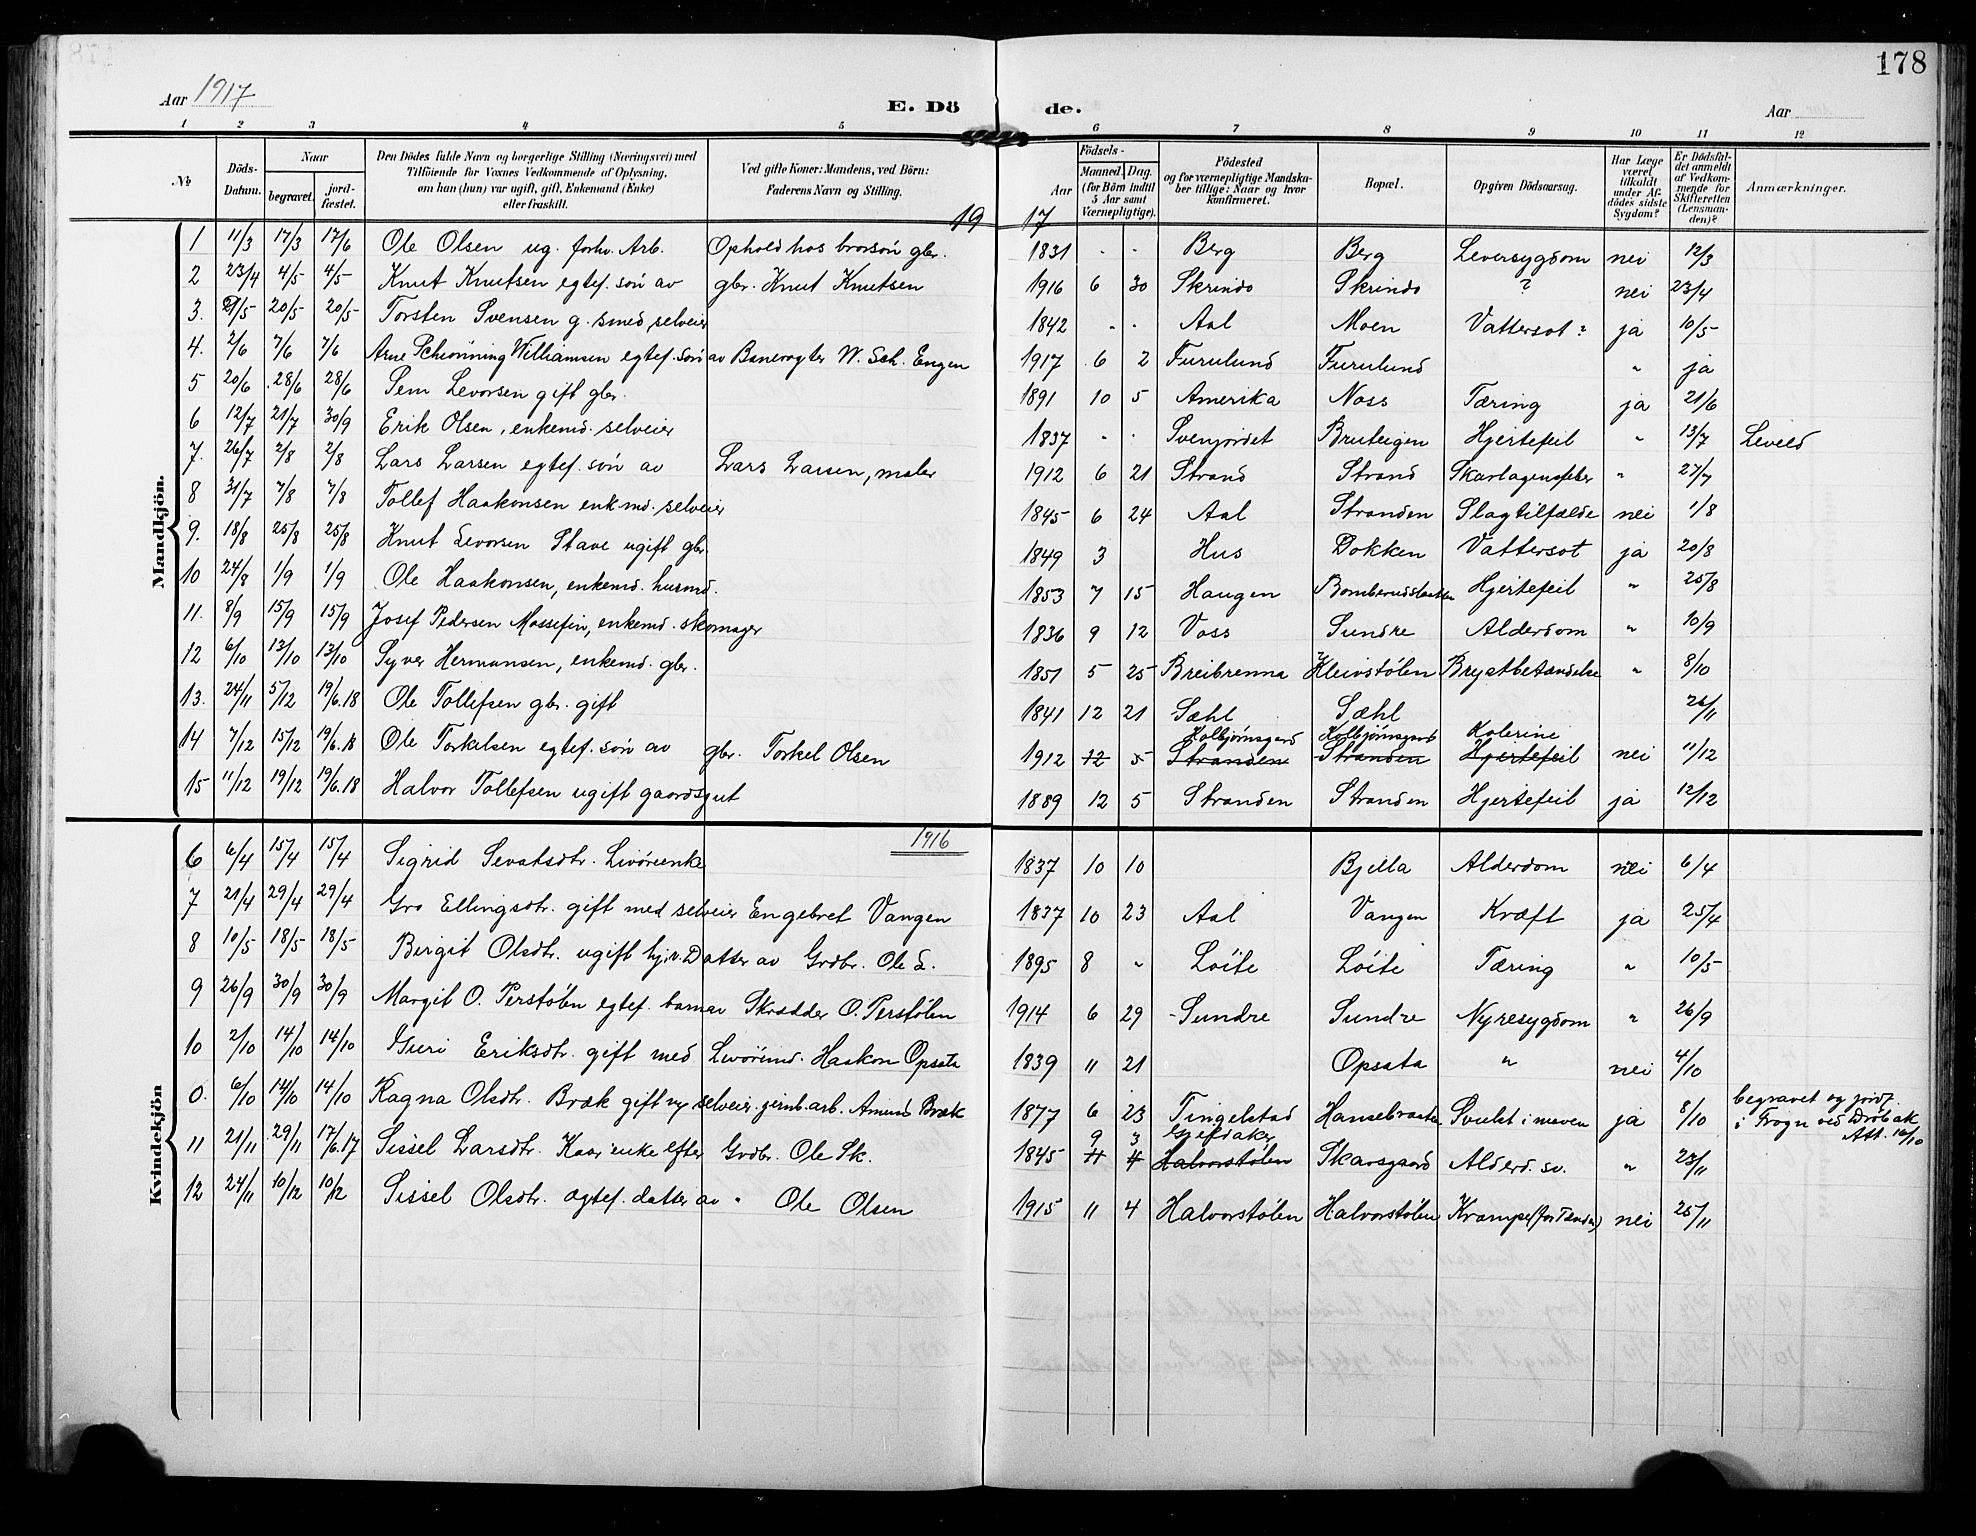 178
Aar 1917 E. Dö de. Aar
1 2 3 4 5 6 7 8 9 10 11 12
No Döds-Datum. Naar begravet. jord-fæstet. Den Dödes fulde Navn og borgerlige Stilling (Næringsvei) med Tilföiende for Voxnes Vedkommende af Oplysning, om han (hun) var ugift, gift, Enkemand (Enke) eller fraskilt. Ved gifte Koner: Mandens, ved Börn: Faderens Navn og Stilling. Aar Födsels- Maaned. Dag. (for Börn indtil 5 Aar samt Værnepligtige). Födested og for værnepligtige Mandskaber tillige: Naar og hvor konfirmeret. Bopæl. Opgiven Dödsaarsag. Har Læge været tilkaldt under Afdödes sidste Sygdom? Er Dödsfaldet anmeldt af Vedkommende for Skifteretten (Lensmanden)? Anmærkninger.
19 17
Mandkjön.
1 11/3 17/3 17/6 Ole Olsen ug. forhv. Arb. Ophold hos brorsön gbr. 1831 - - Berg Berg Leversygdom nei 12/3
2 23/4 4/5 4/5 Knut Knutsen egtef. sön av gbr. Knut Knutsen 1916 6 30 Skrindo Skrindo ? nei 23/4
3. /5 20/5 20/5 Torsten Svensen g. smed, selveier 1842 - - Aal Moen Vattersot? ja 10/5
4. 2/6 7/6 7/6 Arne Schiönning Williamsen egtef. sön av Banevogter W. Sch. Engen 1917 6 2 Furulund Furulund " ja
5 20/6 28/6 28/6 Sem Levorsen gift gbr. 1891 10 5 Amerika Noss Tæring ja 21/6
6 12/7 21/7 30/9 Erik Olsen, enkemd. selveier 1837 - - Svenjordet Bruteigen Hjertefeil " 13/7 Leveld
7. 26/7 2/8 2/8 Lars Larsen egtef. sön av Lars Larsen, maler 1912 6 21 Strand Strand Skarlagensfeber " 27/7
8 31/7 7/8 7/8 Tollef Haakonsen enkmd. selveier 1845 6 24 Aal Stranden Slagtilfælde nei 1/8
9. 18/8 25/8 25/8 Knut Levorsen Stave ugift gbr. 1849 3 Hus Dokken Vattersot ja 20/8
10 24/8 1/9 1/9 Ole Haakonsen, enkemd. husmd. 1853 7 15 Haugen Hjertefeil " 25/8
11. 8/9 15/9 15/9 Josef Pedersen Mossefin, enkemd. skomager 1836 9 12 Voss Sundre Alderdom " 10/9
12 6/10 13/10 13/10 Syver Hermansen, enkemd. gbr. 1851 5 25 Breibrenna Kleivstölen Brystbetændelse " 8/10
13. 24/11 5/12 19/6.18 Ole Tollefsen gbr. gift 1841 12 21 Sæhl Sæhl 26/11
Kolbjörnsgard Kolbjörnsgard Kolerine
14 7/12 15/12 19/6.18 Ole Torkelsen egtef. sön av gbr. Torkel Olsen 1912 12 5 Stranden Stranden Hjertefeil nei 11/12
15 11/12 19/12 19/6.18 Halvor Tollefsen ugift gaardsgut 1889 12 5 Stranden Stranden Hjertefeil ja 12/12
1916
Kvindekjön
6 6/4 15/4 15/4 Sigrid Sevatsdtr. Livörienke 1837 10 10 Bjella Alderdom nei 6/4
7 21/4 29/4 29/4 Gro Ellingsdtr. gift med selveier Engebret Vangen 1837 10 23 Aal Vangen Kræft ja 25/4
8 10/5 18/5 18/5 Birgit Olsdtr. ugift hj.v. Datter av Grdbr. Ole L. 1895 8 " Löite Löite Tæring " 10/5
9 26/9 30/9 30/9 Margit O. Perstölen egtef. barn av Skrædder O. Perstölen 1914 6 29 Sundre Sundre Nyresygdom " 26/9
10 2/10 14/10 14/10 Guri Eriksdtr. gift med Livörmd. Haakon Opsata 1839 11 21 Opsata " nei 4/10
0. 6/10 14/10 14/10 Ragna Olsdtr. Bræk gift m. selveier. jernb.arb. Amund Bræk 1877 6 23 Tingelstad Svulst i maven ja 8/10 begravet og jordf. i Frogn ved Dröbak Att. 16/10
9 3
11 21/11 29/11 17/6.17 Sissel Larsdtr. Kaarenke efter Grdbr. Ole Sk. 1845 11 4 Halvorstölen Skarsgard Alderd. sv. " 23/11
12 24/11 10/12 10/12 Sissel Olsdtr. egtef. datter av " Ole Olsen 1915 11 4 Halvorstölen Halvorstölen Krampe (for Tænder) nei 25/11